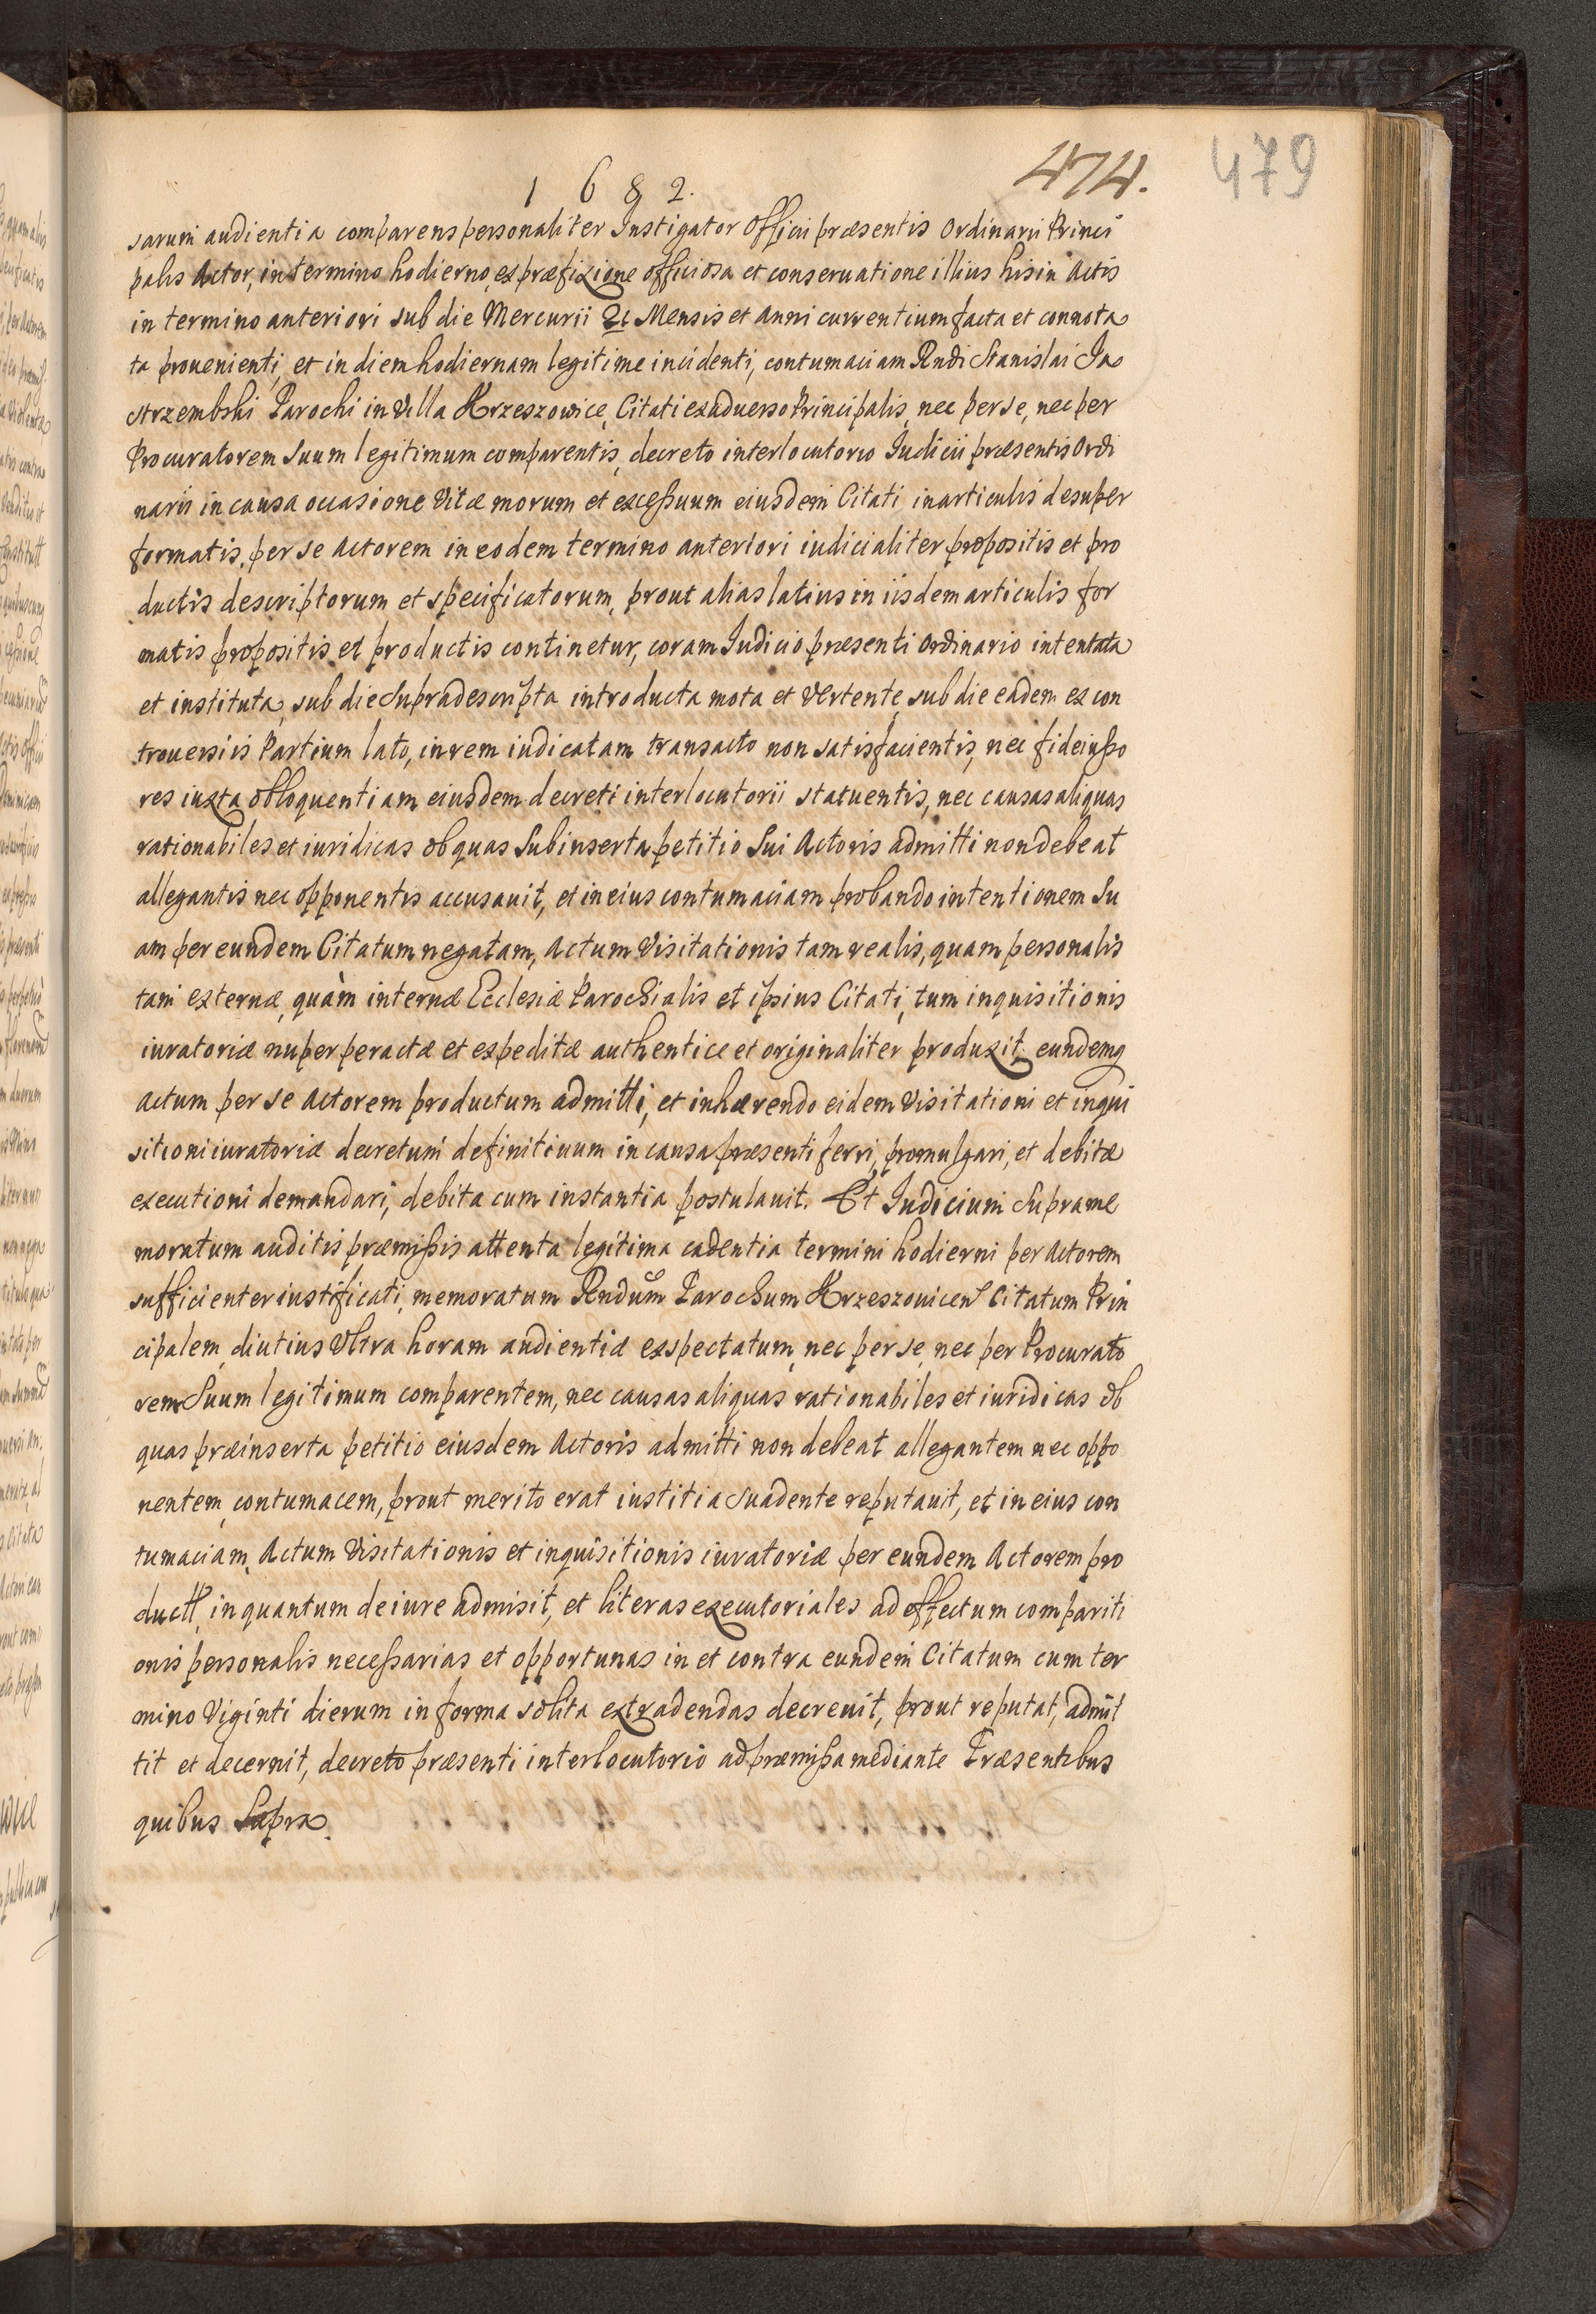 1682.
474.
479
sarum audientia comparens personaliter Instigator Officii præsentis Ordinarii Princi
palis Actor, in termino hodierno, ex præfixione officiosa et conseruatione illius hisin Actis
in termino anteriori sub die Mercurii 21 Mensis et Anni currentium facta et connota
ta prouenienti, et in diem hodiernam legitime incidenti, contumaciam Rndi Stanislai Ja
strzembski Parochi in Villa Krzeszowice, Citati ex aduerso Principalis, nec per se, nec per
Procuratorem Suum legitimum comparentis, decreto interlocutorio Iudicii præsentis Ordi
narii in causa occasione Vitæ morum et excessuum eiusdem Citati in articulis desuper
formatis, per se Actorem in eodem termino anteriori iudicialiter propositis et pro
ductis descriptorum et specificatorum, prout alias latius in iisdem articulis for
matis propositis et productis continetur, coram Iudicio præsenti Ordinario intentata
et instituta, sub die Supradescripta introducta mota et Vertente, sub die eadem ex con
trouersiis Partium lato, in rem iudicatam transacto non satisfacientis, nec fideiusso
res iuxta obloquentiam eiusdem decreti interlocutorii statuentis, nec causas aliquas
rationabiles et iuridicas ob quas Subinserta petitio Sui Actoris admitti non debeat
allegantis nec opponentis accusauit, et in eius contumaciam probando intentionem Su
am per eundem Citatum negatam, Actum Visitationis tam realis, quam personalis
tam externæ, quàm internæ Ecclesiæ Parochialis et ipsius Citati, tum inquisitionis
iuratoriæ nuper peractæ et expeditæ authentice et originaliter produxit, eundemq
Actum per se Actorem productum admitti, et inhærendo eidem Visitationi et inqui
sitioni iuratoriæ decretum definitiuum in causa præsenti ferri, promulgari, et debitæ
executioni demandari, debita cum instantia postulauit. Et Iudicium Suprame
moratum auditis præmissis attenta legitima cadentia termini hodierni per Actorem
sufficienter iustificati, memoratum Rndum Parochum Krzeszouicen Citatum Prin
cipalem, diutius Vltra horam audientiæ exspectatum, nec per se, nec per Procurato
rem Suum legitimum comparentem, nec causas aliquas rationabiles et iuridicas ob
quas præinserta petitio eiusdem Actoris admitti non debeat allegantem nec oppo
nentem, contumacem, prout merito erat iustitia suadente reputauit, et in eius con
tumaciam, Actum Visitationis et inquisitionis iuratoriæ per eundem Actorem pro
ductu, in quantum de iure admisit, et literas executoriales ad effectum compariti
onis personalis necessarias et opportunas in et contra eundem Citatum cum ter
mino Viginti dierum in forma solita extradendas decreuit, prout reputat, admit
tit et decernit, decreto præsenti interlocutorio ad præmissa mediante Præsentibus
quibus Supra.